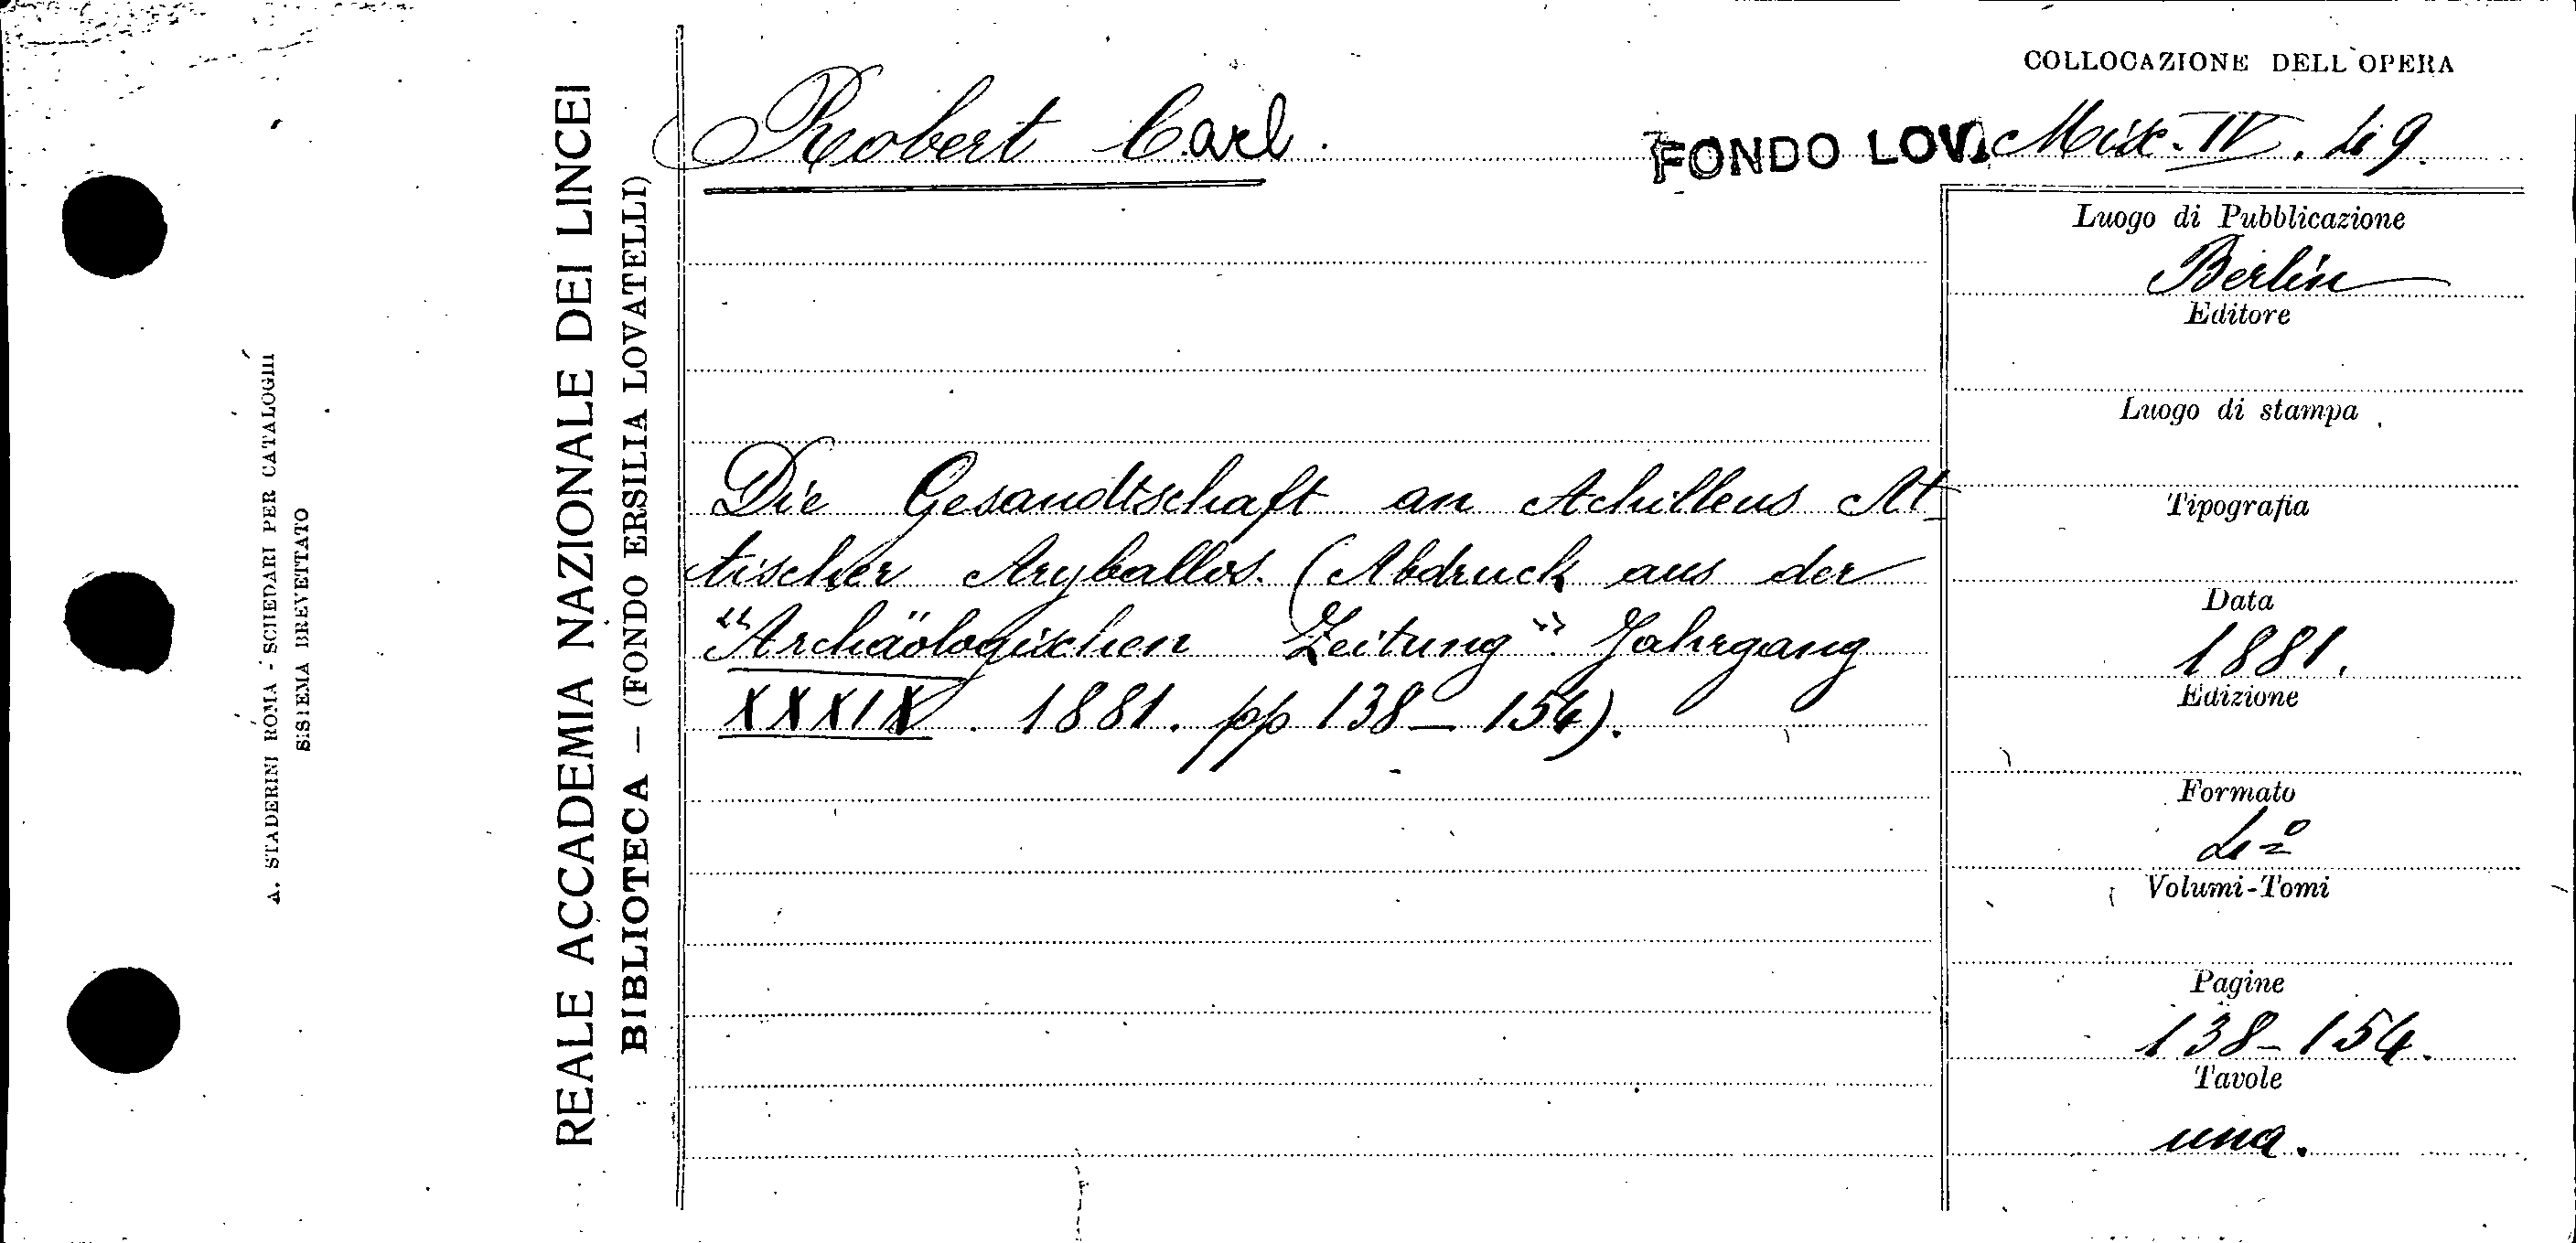 COLLOCAZIONE DELL'OPERA
Robert Carl.
FONDO LOV. Misc. IV. 49.
REALE ACCADEMIA NAZIONALE DEI LINCEI
BIBLIOTECA — (FONDO ERSILIA LOVATELLI)
A. STADERINI ROMA - SCHEDARI PER CATALOGHI
SISTEMA BREVETTATO
Die Gesandtschaft an Achilleus At-
tischer Aryballos. (Abdruck aus der
"Archäologischen Zeitung". Jahrgang
XXXIX. 1881. pp 138-154).
Luogo di Pubblicazione
Berlin
Editore
Luogo di stampa
Tipografia
Data
1881.
Edizione
Formato
4º
Volumi-Tomi
Pagine
138-154.
Tavole
una.